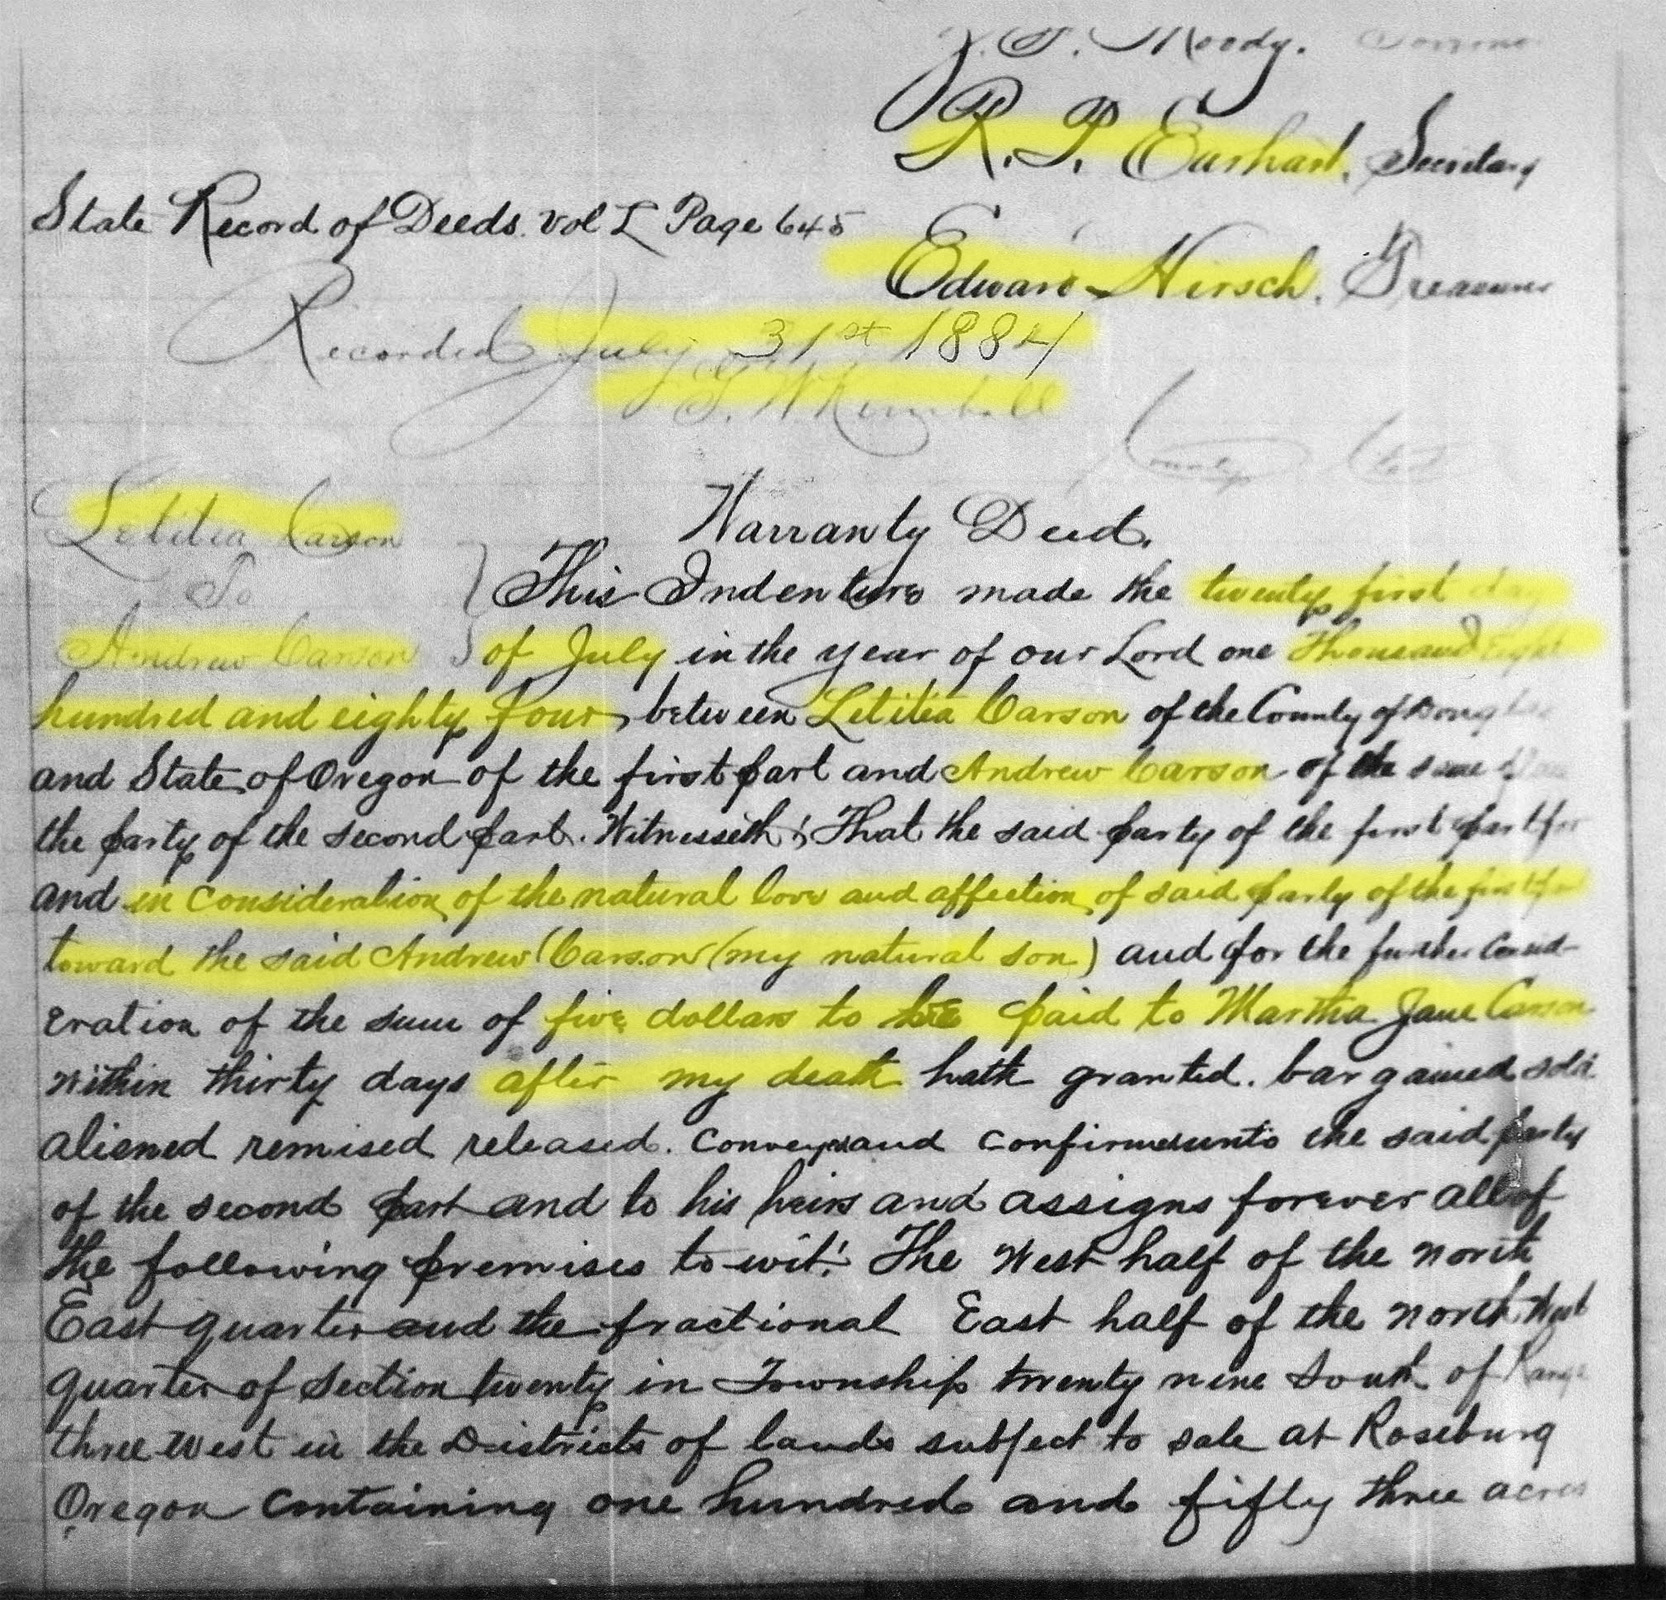 Z. F. Moody.
R. P. Earhart, Secretary
State Record of Deeds. Vol L Page 645
Edward Hirsch. Treasurer
Recorded July 31st 1884
G. W Kimball
County Clerk
Letitia Carson
Warranty Deed.
To
This Indenture made the twenty first day
Andrew Carson
of July in the year of our Lord one Thousand Eight
hundred and eighty four, between Letitia Carson of the County of Douglas
and State of Oregon of the first part and Andrew Carson of the same place
the party of the second part. Witnesseth; That the said party of the first part for
and in consideration of the natural love and affection of said party of the first part
toward the said Andrew Carson (my natural son) and for the further Consid-
eration of the sum of five dollars to be paid to Martha Jane Carson
within thirty days after my death hath granted. bargained sold
aliened remised released. Conveys and confirms unto the said party
of the second part and to his heirs and assigns forever all of
the following premises to wit: The West half of the North
East quarter and the fractional East half of the North West
quarter of Section twenty in Township twenty nine South of Range
three West in the Districts of lands subject to sale at Roseburg
Oregon Containing one hundred and fifty three acres